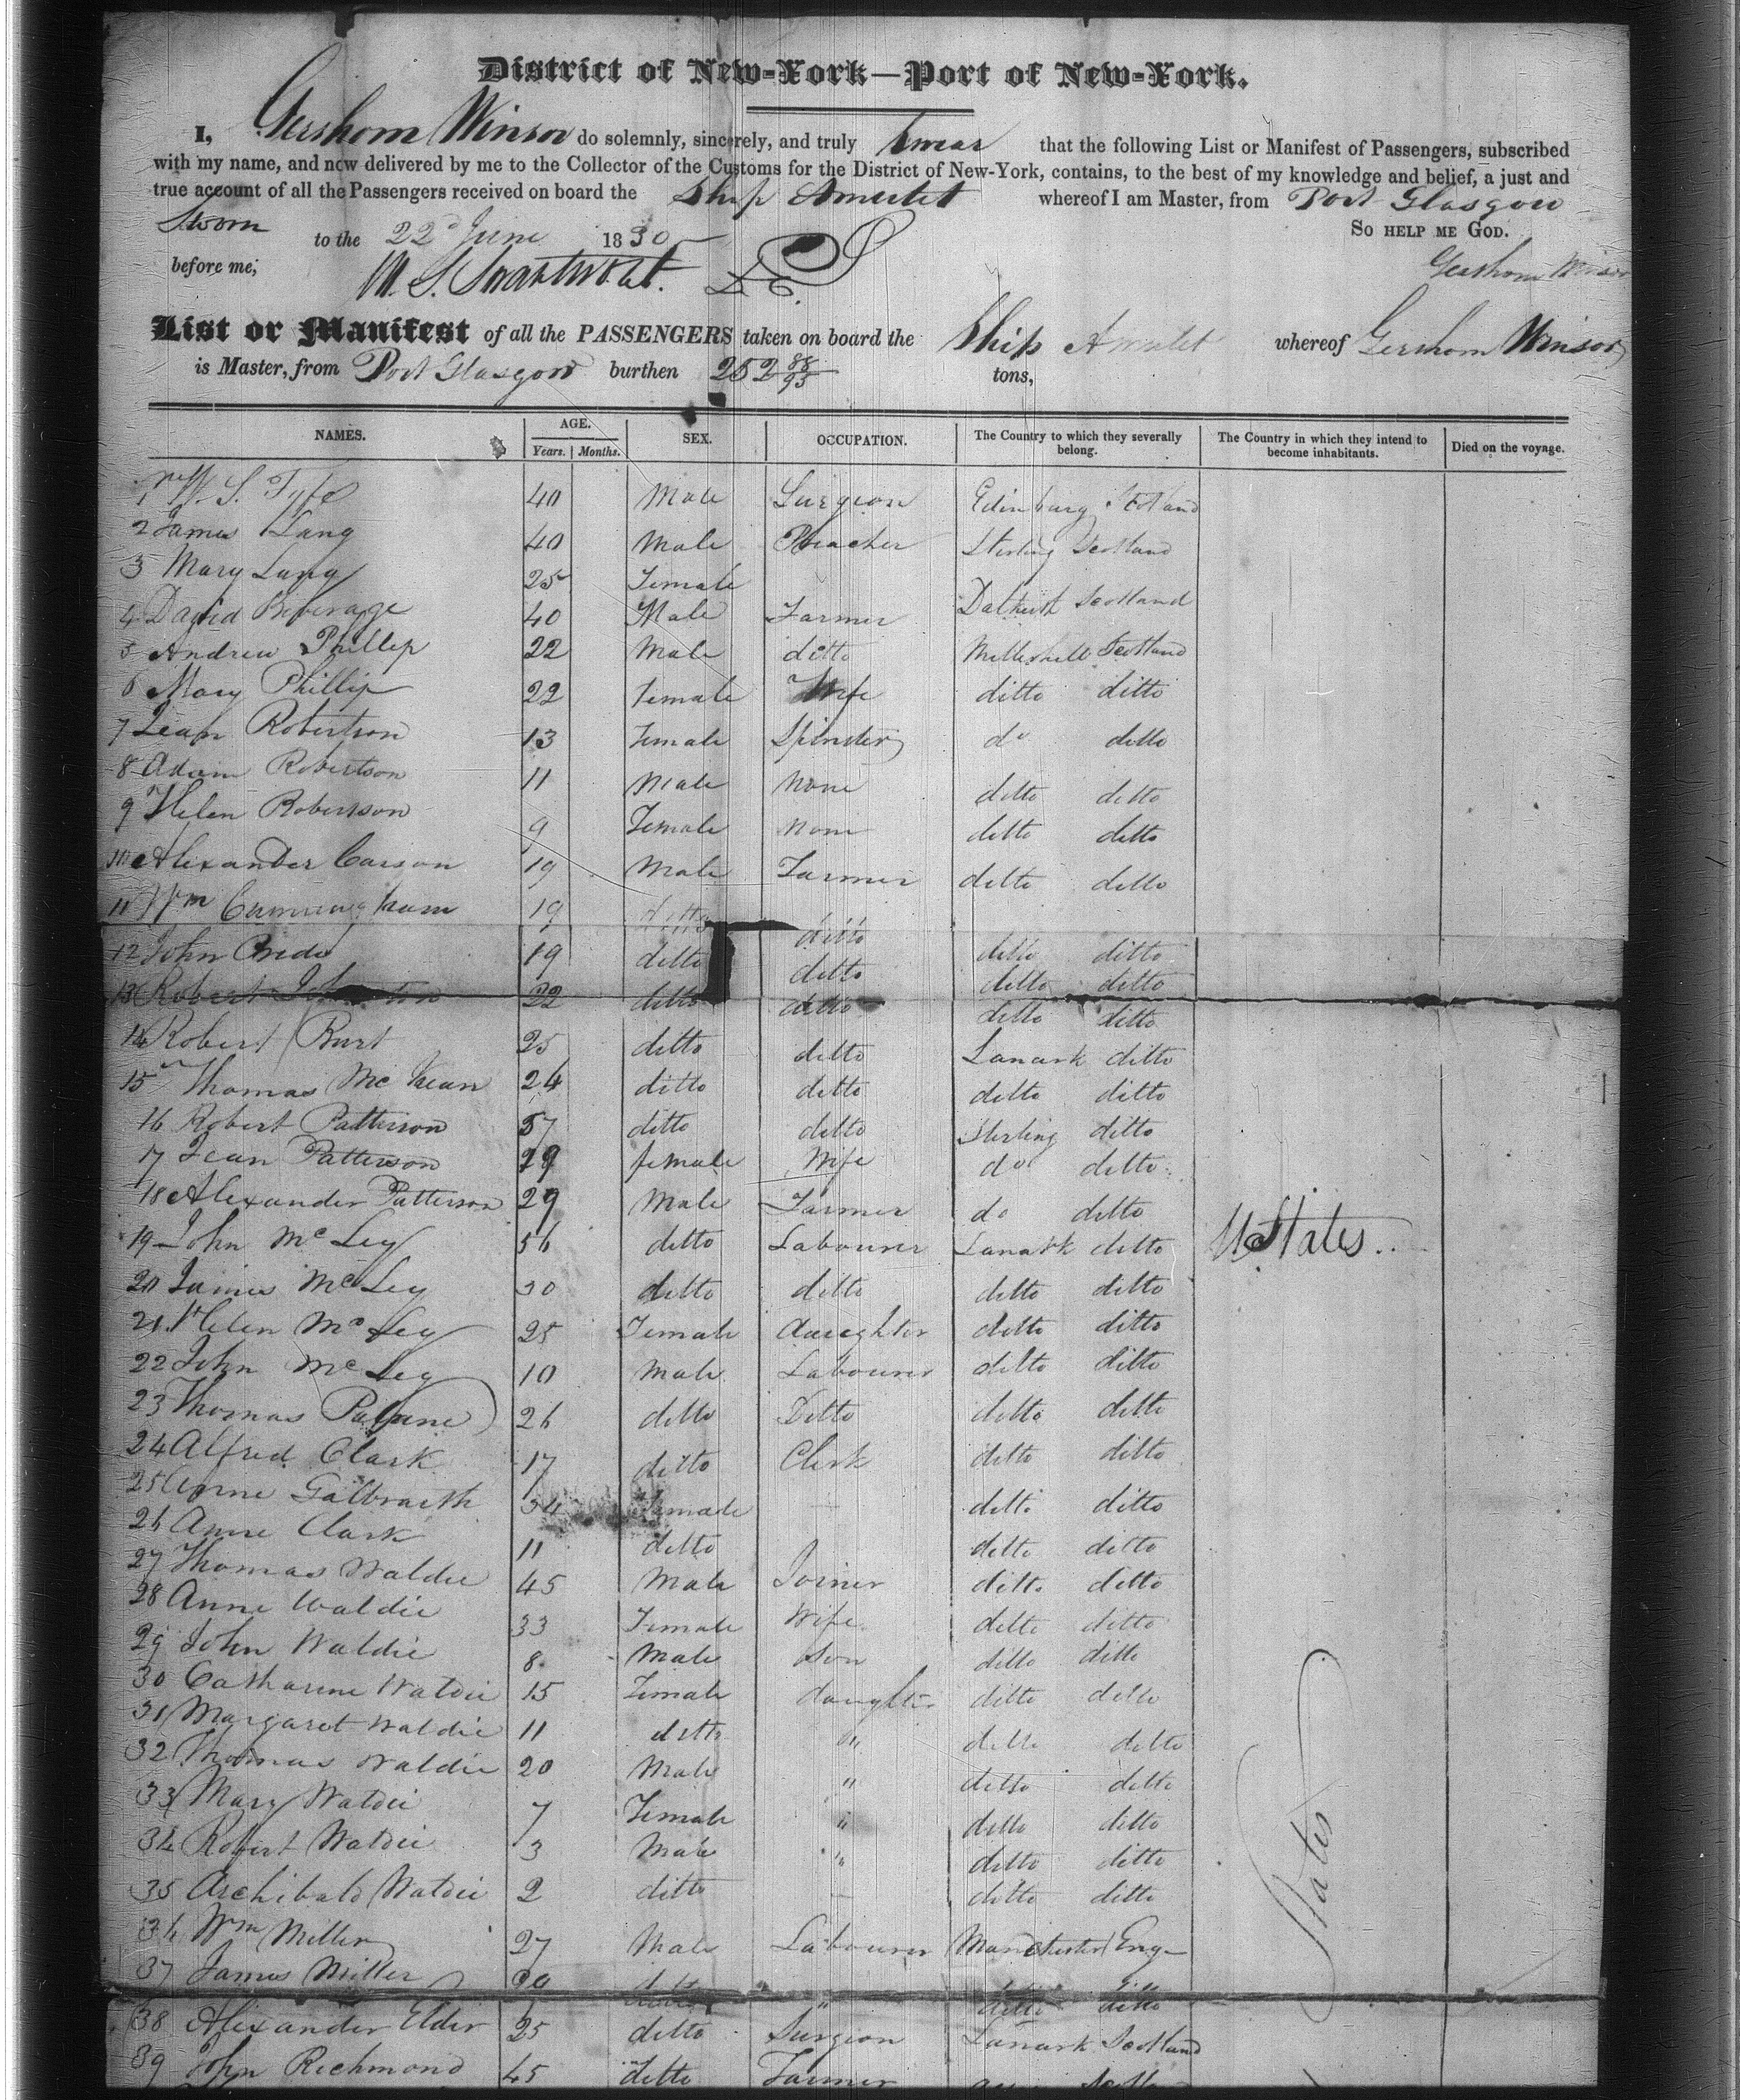 District of New-York—Port of New-York.
I, Gershom Winsor do solemnly, sincerely, and truly swear that the following List or Manifest of Passengers, subscribed
with my name, and now delivered by me to the Collector of the Customs for the District of New-York, contains, to the best of my knowledge and belief, a just and
true account of all the Passengers received on board the Ship Amulet whereof I am Master, from Port Glasgow
Sworn to the 22d June 1830 So help me God.
before me, Gershom Winsor
List or Manifest of all the PASSENGERS taken on board the Ship Amulet whereof Gershom Winsor
is Master, from Port Glasgow burthen 252 88/95 tons,
NAMES. AGE. SEX. OCCUPATION. The Country to which they severally belong. The Country in which they intend to become inhabitants. Died on the voyage.
Years. Months.
1 W. S. 40 Male Surgeon Edinburg Scotland
2 James Lang 40 Male Preacher Sterling Scotland
3 Mary Lang 25 Female
4 David Beverage 40 Male Farmer Dalkeith Scotland
5 Andrew Phillip 22 Male ditto Scotland
6 Mary Phillip 22 female Wife ditto ditto
7 Jean Robertson 13 Female Spinster do ditto
8 Adam Robertson 11 Male None ditto ditto
9 Helen Robertson 9 Female None ditto ditto
10 Alexander Carson 19 Male Farmer ditto ditto
11 Wm Cunningham 19 ditto ditto ditto ditto
12 John 19 ditto ditto ditto ditto
13 Robert 22 ditto ditto ditto ditto
14 Robert Burt 25 ditto ditto Lanark ditto
15 Thomas McKean 24 ditto ditto ditto ditto
16 Robert Patterson 57 ditto ditto Sterling ditto
17 Jean Patterson female Wife do ditto
18 Alexander Patterson 29 Male Farmer do ditto
19 John McLey 56 ditto Labourer Lanark ditto U States..
20 James McLey 30 ditto ditto ditto ditto
21 Helen McLey 25 Female daughter ditto ditto
22 John McLey 10 Male Labourer ditto ditto
23 Thomas 26 ditto Ditto ditto ditto
24 Alfred Clark 17 ditto Clerk ditto ditto
25 Anne Galbraith 34 Female ditto ditto
26 Anne Clark 11 ditto ditto ditto
27 Thomas Waldie 45 Male Joiner ditto ditto
28 Anne Waldie 33 Female Wife ditto ditto
29 John Waldie 8 Male Son ditto ditto
30 Catharine Waldie 15 Female daughter ditto ditto
31 Margaret Waldie 11 ditto " ditto ditto
32 Thomas Waldie 20 Male " ditto ditto
33 Mary Waldie 7 Female " ditto ditto
34 Robert Waldie 3 Male " ditto ditto States
35 Archibald Waldie 2 ditto ditto ditto
36 Wm Miller 27 Male Labourer Manchester Eng-
37 James Miller ditto " ditto ditto
38 Alexander Elder 25 ditto Surgeon Lanark Scotland
39 John Richmond 45 ditto Farmer Scotland